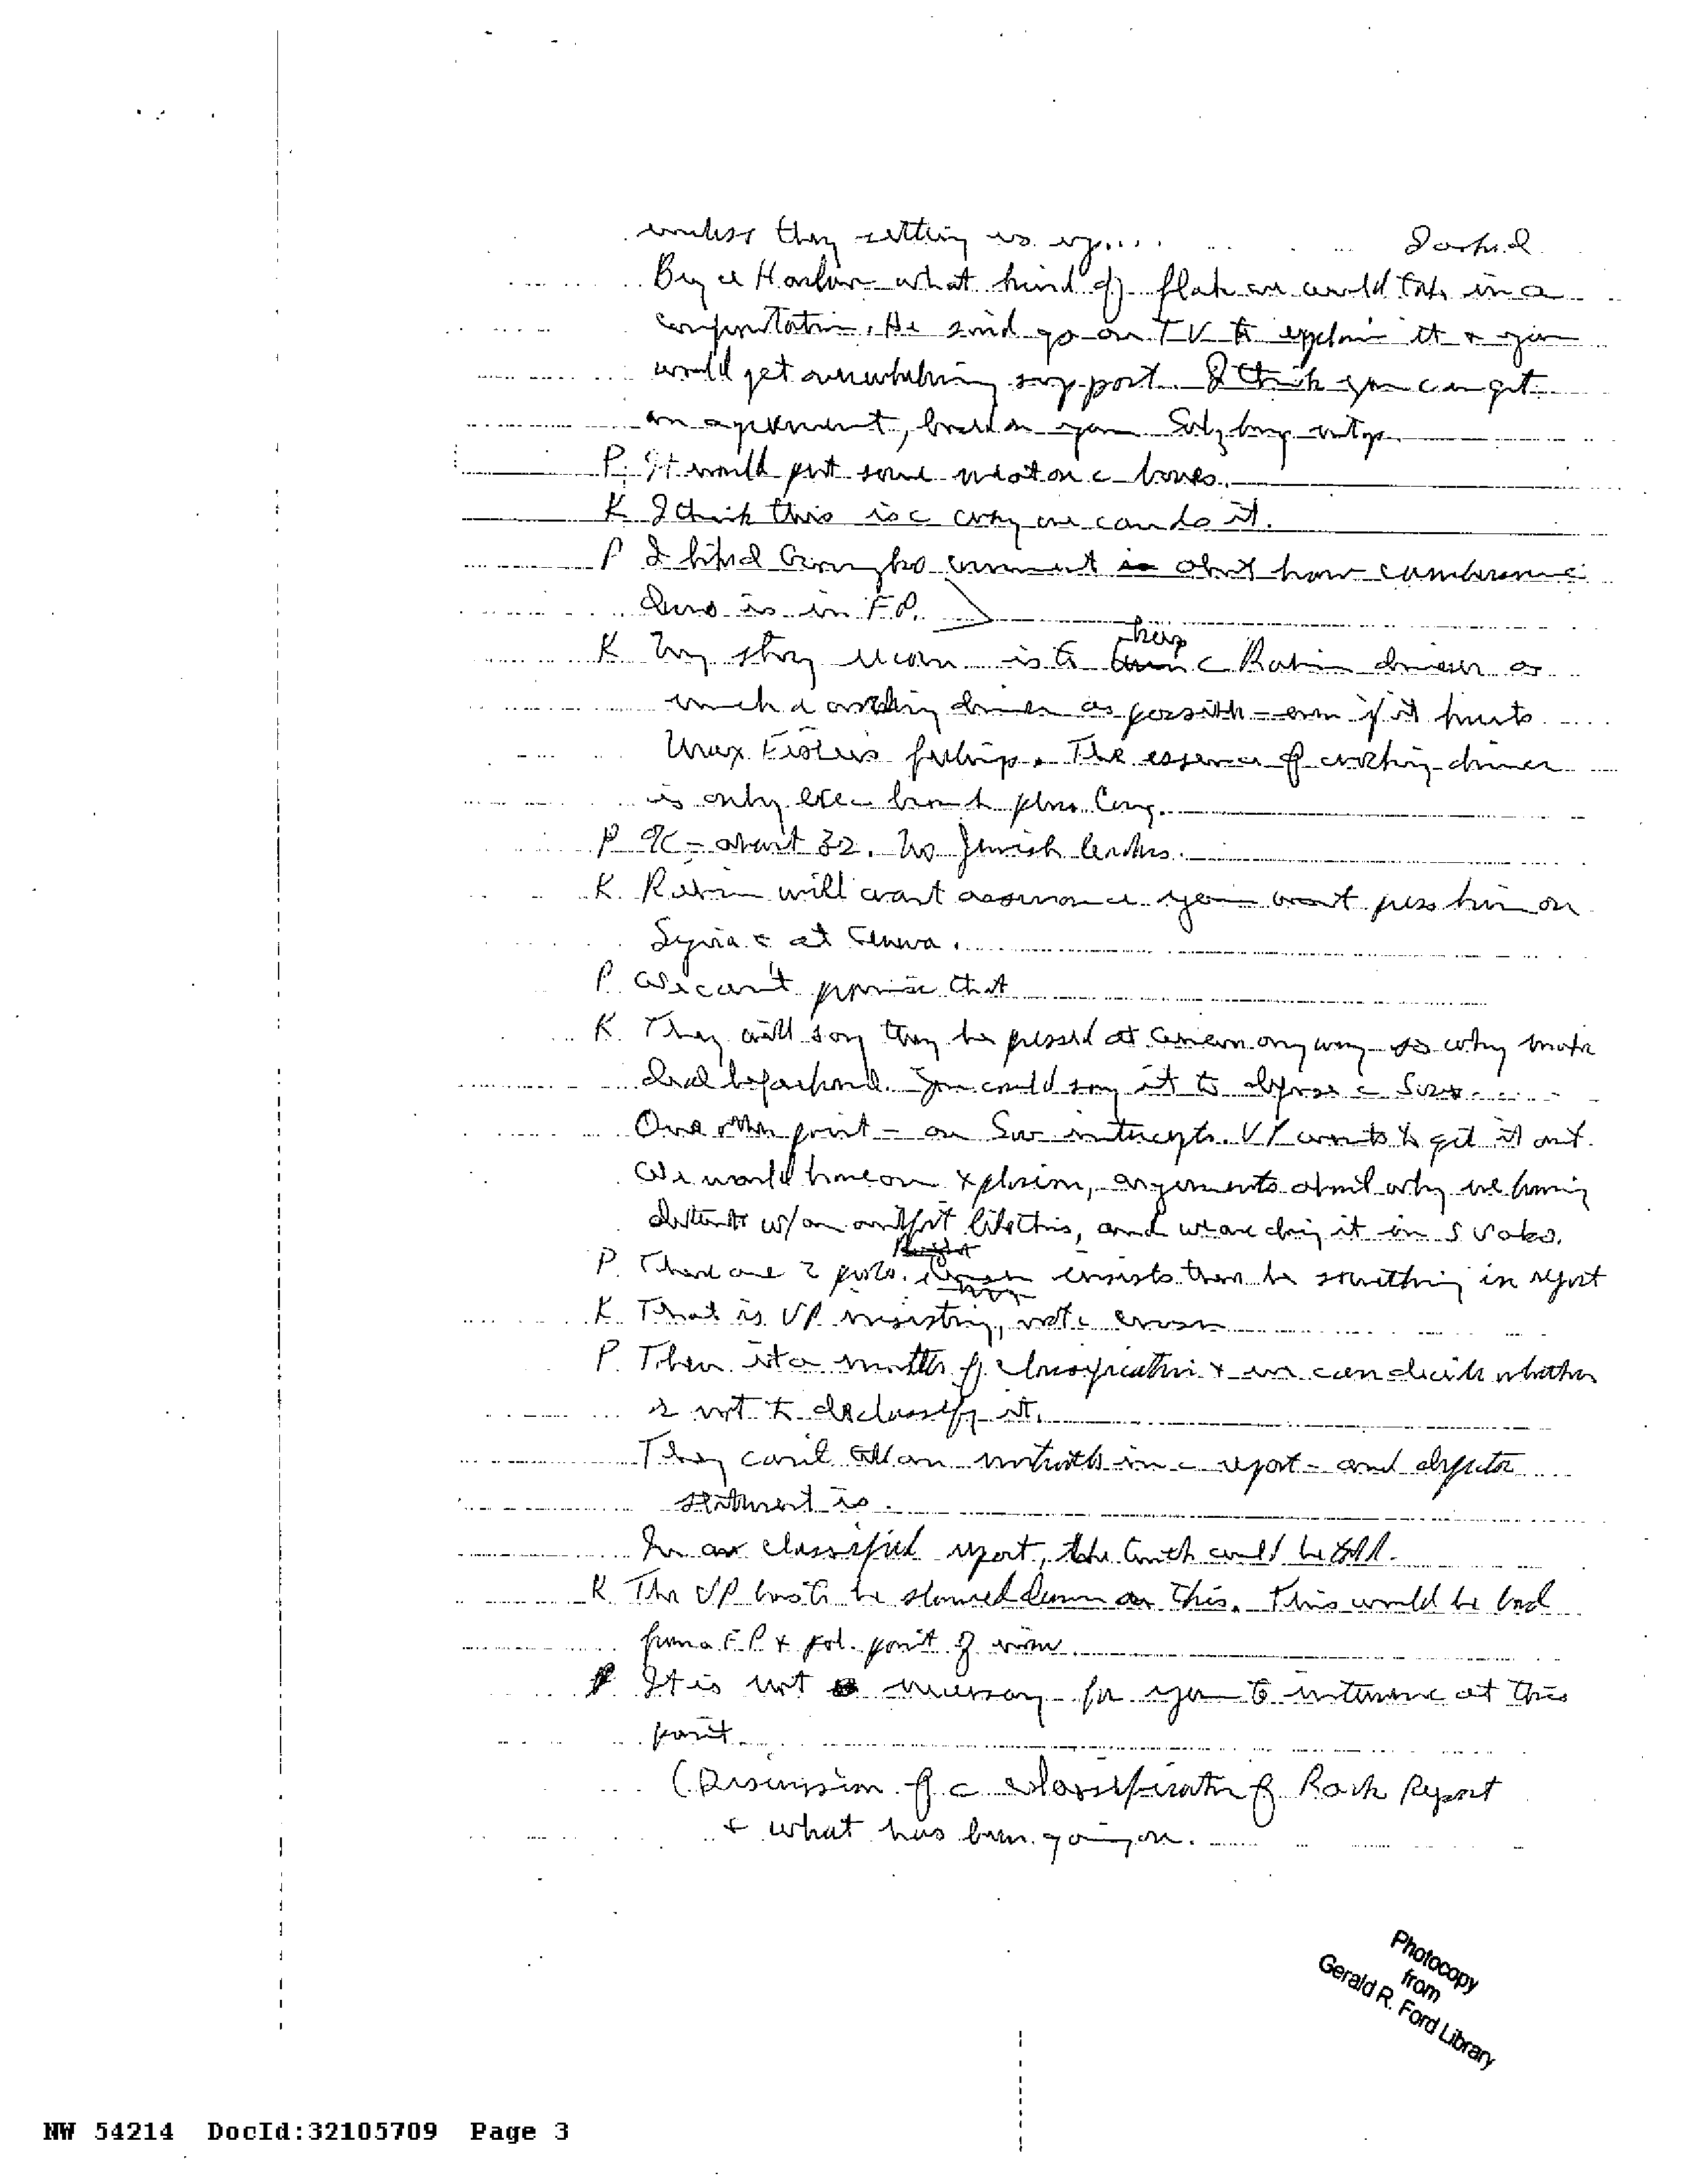 unless they setting us up.... I asked
Bryce Harlow what kind of flak we could take in a
confrontation. He said go on TV to explain it & you
would get overwhelming support. I think you can get
an agreement, based on your Salzburg
P. It would put some meat on c bones.
K I think this is c way we can do it.
P I liked comment about how cumbersome
is in F.P.
K My strong recom is to keep c Rabin dinner as
much a working dinner as possible - even if it hurts
Max Fisher's feelings. The essence of working dinner
is only exec branch plus Cong.
P OK - about 32. No Jewish leaders.
K. Rabin will want assurance you won't press him on
Syria & at Geneva.
P. We can't promise that
K. They will say they be pressed at Geneva anyway so why make
deal beforehand. You could say it to defuse c Sovs.
One other point - on Sov intercepts. VP wants to get it out.
We would have an xplosion, arguments about why we having
detente w/an outfit like this, and we are doing it in S Vobo.
P. There are 2 pts. insists there be something in report
K That is VP insisting, not c
P. Then its a matter of classification & we can decide whether
or not to declassify it.
They can't tell an untruth in c report - and
statement is.
In a classified report, the truth could be told.
K The VP has to be slowed down on this. This would be bad
from a F.P & pol. point of view.
P It is not necessary for you to intervene at this
point.
(Discussion of c classification of Rock Report
& what has been going on.
Photocopy
from
Gerald R. Ford Library
NW 54214 DocId:32105709 Page 3